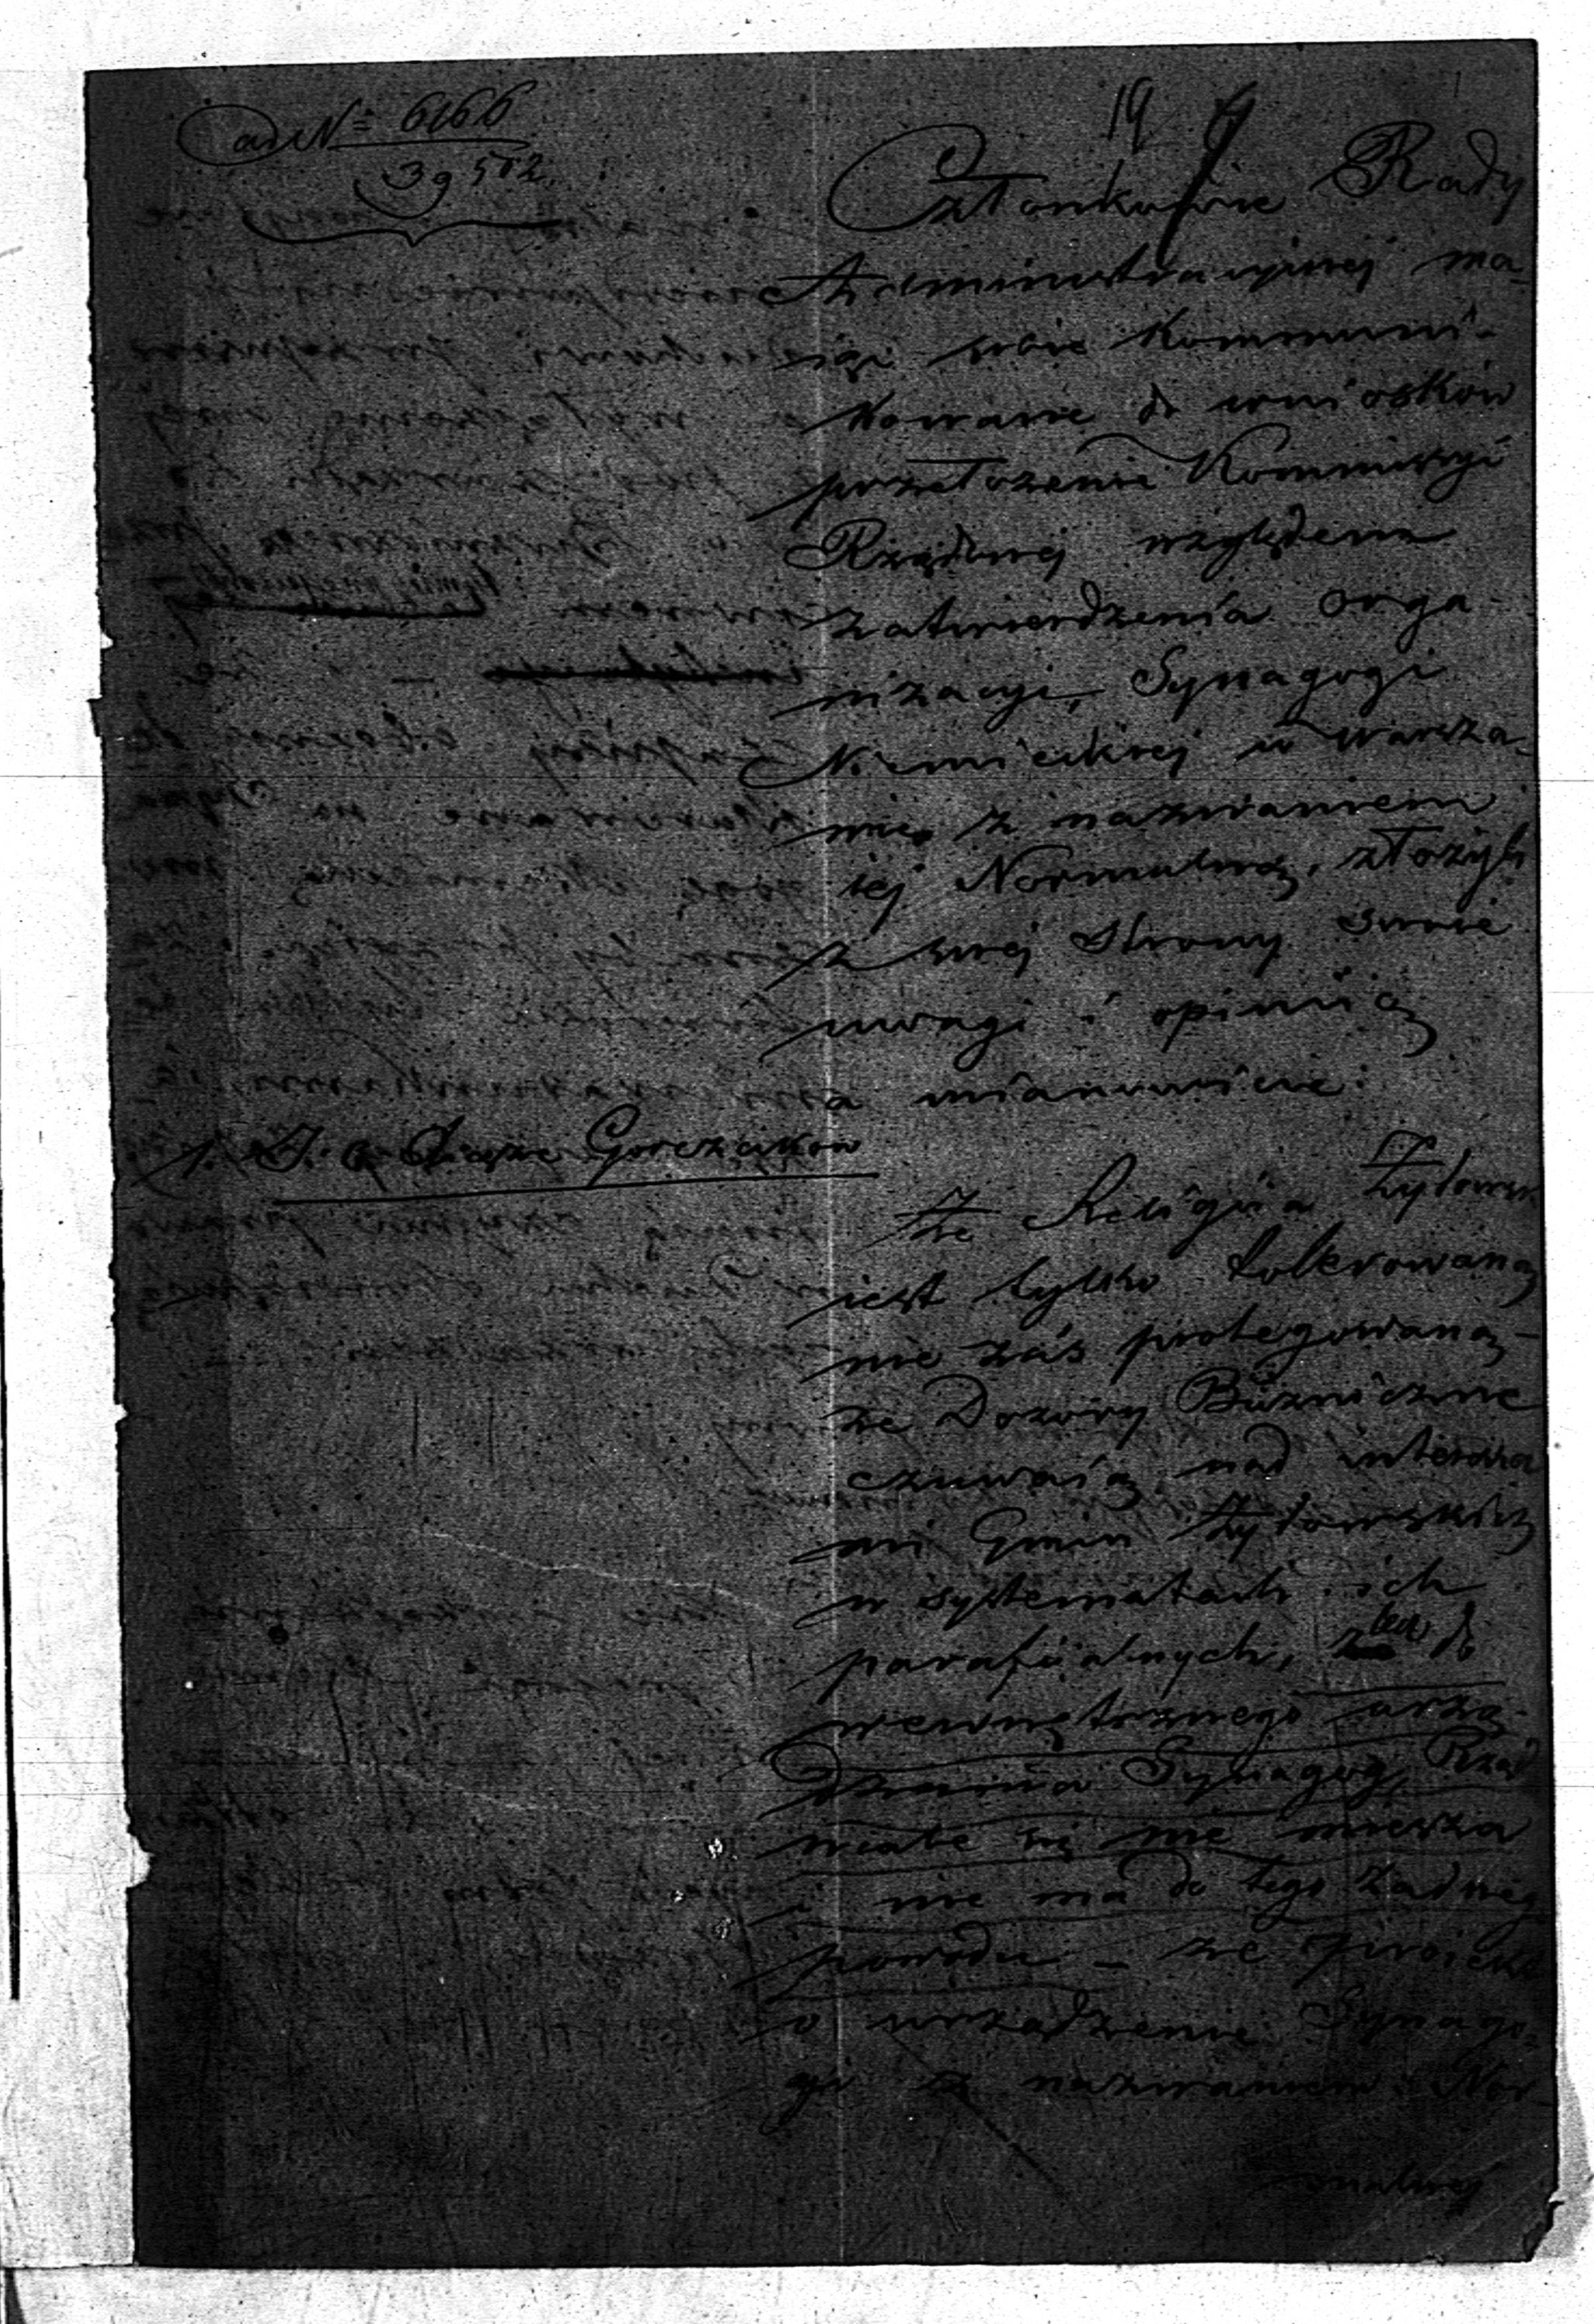 ad N= 6166
39502
19
Członkowie Rady
Administracyjnej ma-
iąc sobie kommuni-
kowane do wniosków
przełożenie Kommissyi
Rządowej względem
zatwierdzenia orga-
nizacyi, Synagogi
Niemieckiej w Warsza-
wie, z nazwaniem
iej Normalną, złożyli
z swej strony swoie
uwagi i opinią
a mianowicie:
1. J. O. Xiąże Gorczakow
Że Religia Żydowska
iest tylko tolerowaną
nie zaś protegowaną -
że Dozory Bóżnicze
czuwaią nad interesa
mi Gmin Żydowskich
w systematach ich
parafialnych, lecz do
wewnętrznego urzą-
dzenia Synagog, Rząd
wcale się nie miesza
i nie ma do tego żadnego
powodu - że proiekt
o urządzenie Synago-
gi z nazwaniem Nor
malnej